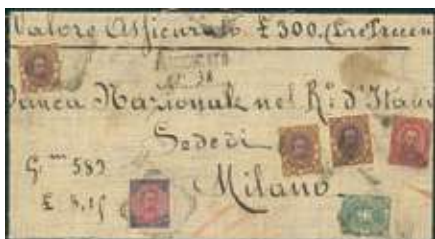 Valore Assicurato £ 300. (Lire Trecen
Banca Nazionale nel R.º d'Italia
Sede di
Milano
G.mi 583
£